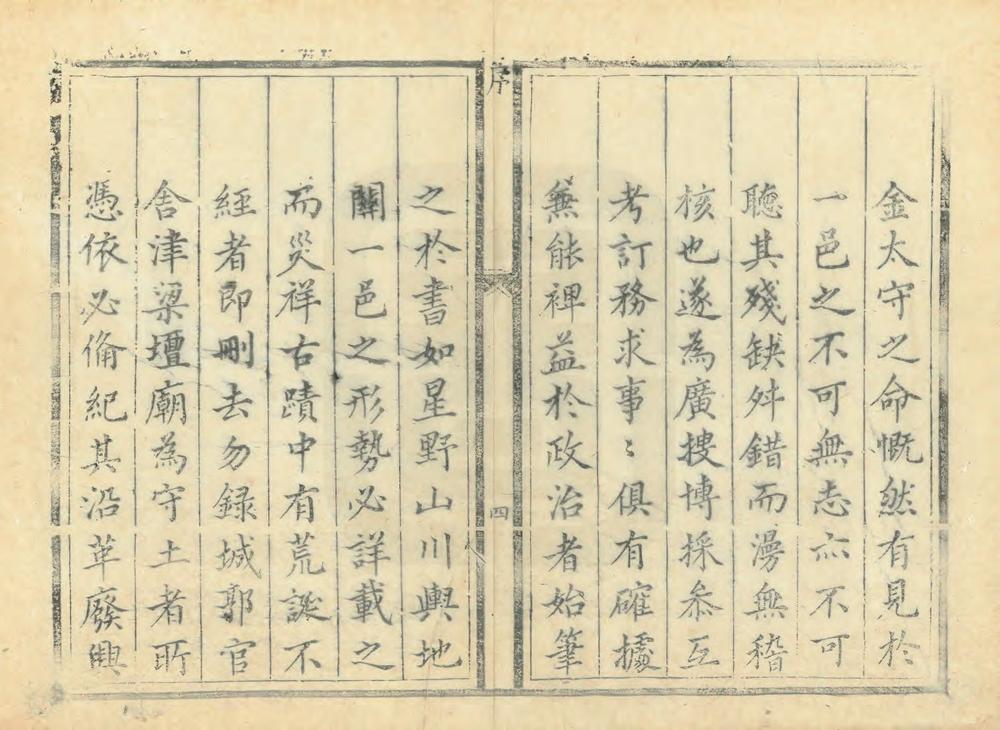 金太守之命慨然有見於
一邑之不可無志亦不可
聽其殘缺舛錯而漫無稽
核也遂為廣搜博採叅互
考訂務求事〻俱有確據
無能裨益於政治者始筆
序
四
之於書如星野山川輿地
關一邑之形勢必詳載之
而災祥古蹟中有荒誕不
經者即刪去勿録城郭官
舍津梁壇廟為守土者所
憑依必俻紀其沿革廢興